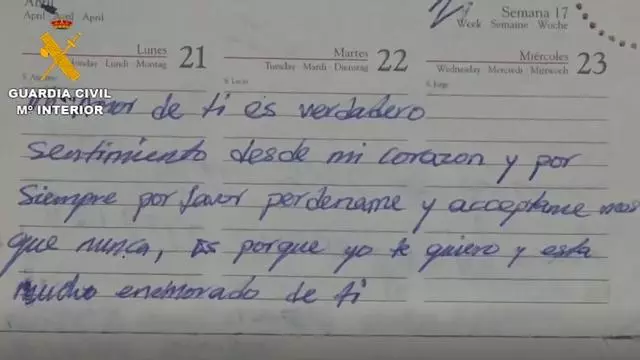 Abril
April Avril April
Semana 17
Week Semaine Woche
Lunes 21
Monday Lundi Montag
Martes 22
Tuesday Mardi Dienstag
Miércoles 23
Wednesday Mercredi Mittwoch
S. Lucas
S. Jorge
GUARDIA CIVIL
Mº INTERIOR
de ti es verdadero
sentimiento desde mi corazon y por
siempre por favor perdename y acceptame mas
que nunca, es porque yo te quiero y esta
mucho enemorado de ti